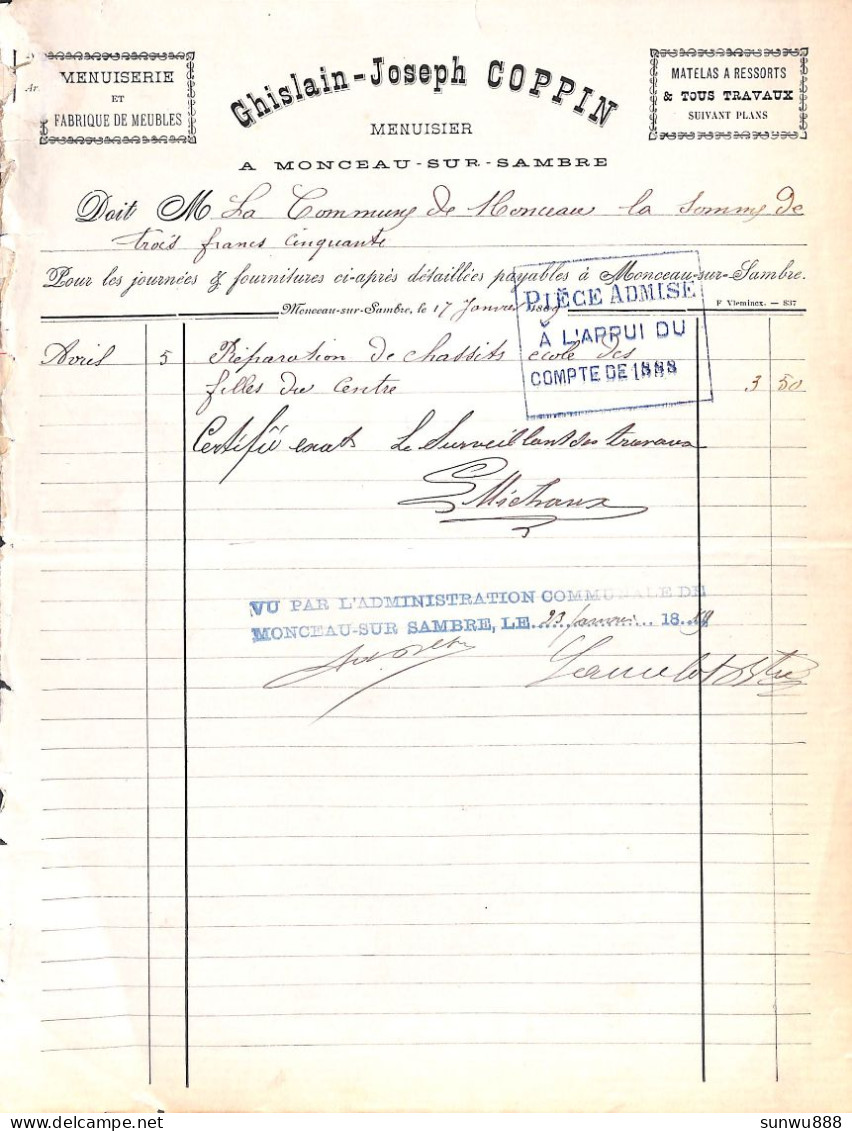 MENUISERIE
ET
FABRIQUE DE MEUBLES
Ghislain-Joseph COPPIN
MENUISIER
A MONCEAU-SUR-SAMBRE
MATELAS A RESSORTS
& TOUS TRAVAUX
SUIVANT PLANS
Ar.
Doit M La Commune de Monceau la somme de
trois francs cinquante
Pour les journées & fournitures ci-après détaillées payables à Monceau-sur-Sambre.
Monceau-sur-Sambre, le 17 Janvier 1889
F Vleminex. — 837
PIÈCE ADMISE
À L'APPUI DU
COMPTE DE 1888
Avril 5 Réparation de chassits école des
filles du centre 3 50
Certifié exact Le Surveillant des travaux
Michaux
VU PAR L'ADMINISTRATION COMMUNALE DE
MONCEAU-SUR SAMBRE, LE 23 janvier 1889
delcampe.net
sunwu888